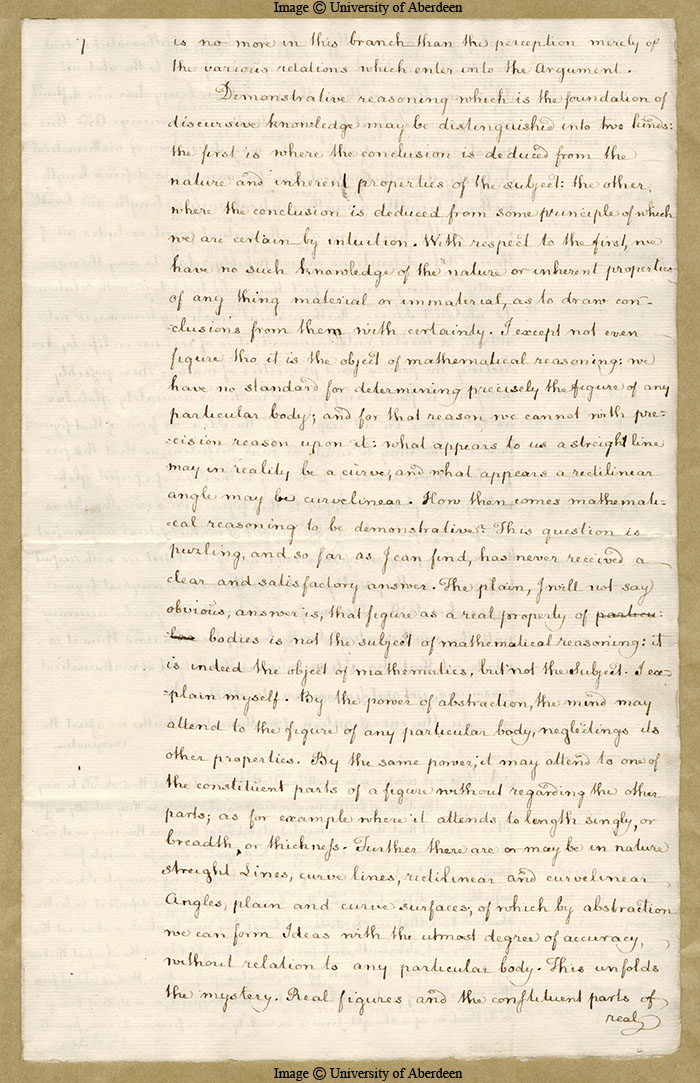 Image © University of Aberdeen
7
is no more in this branch than the perception merely of
the various relations which enter into the Argument.
Demonstrative reasoning which is the foundation of
discursive knowledge may be distinguished into two kinds:
the first is where the conclusion is deduced from the
nature and inherent properties of the subject: the other,
where the conclusion is deduced from some principle of which
we are certain by intuition. With respect to the first, we
have no such knowledge of the nature or inherent properties
of any thing material or immaterial, as to draw con-
-clusions from them with certainty. I except not even
figure tho it is the object of mathematical reasoning: we
have no standard for determining precisely the figure of any
particular body; and for that reason we cannot with pre-
-cision reason upon it: what appears to us a streight line
may in reality be a curve; and what appears a rectilinear
angle may be curvelinear. How then comes mathemati-
-cal reasoning to be demonstrative? This question is
puzling, and so far as I can find, has never received a
clear and satisfactory answer. The plain, I will not say
obvious, answer is, that figure as a real property of particu-
-lar bodies is not the subject of mathematical reasoning: it
is indeed the object of mathematics, but not the Subject. I ex-
-plain myself. By the power of abstraction, the mind may
attend to the figure of any particular body, neglectings its
other properties. By the same power, it may attend to one of
the constituent parts of a figure without regarding the other
parts; as for example where it attends to length singly, or
breadth, or thickness. Further there are or may be in nature
streight Lines, curve lines, rectilinear and curvelinear
Angles, plain and curve surfaces, of which by abstraction
we can form Ideas with the utmost degree of accuracy,
without relation to any particular body. This unfolds
the mystery. Real figures and the constituent parts of
real
Image © University of Aberdeen